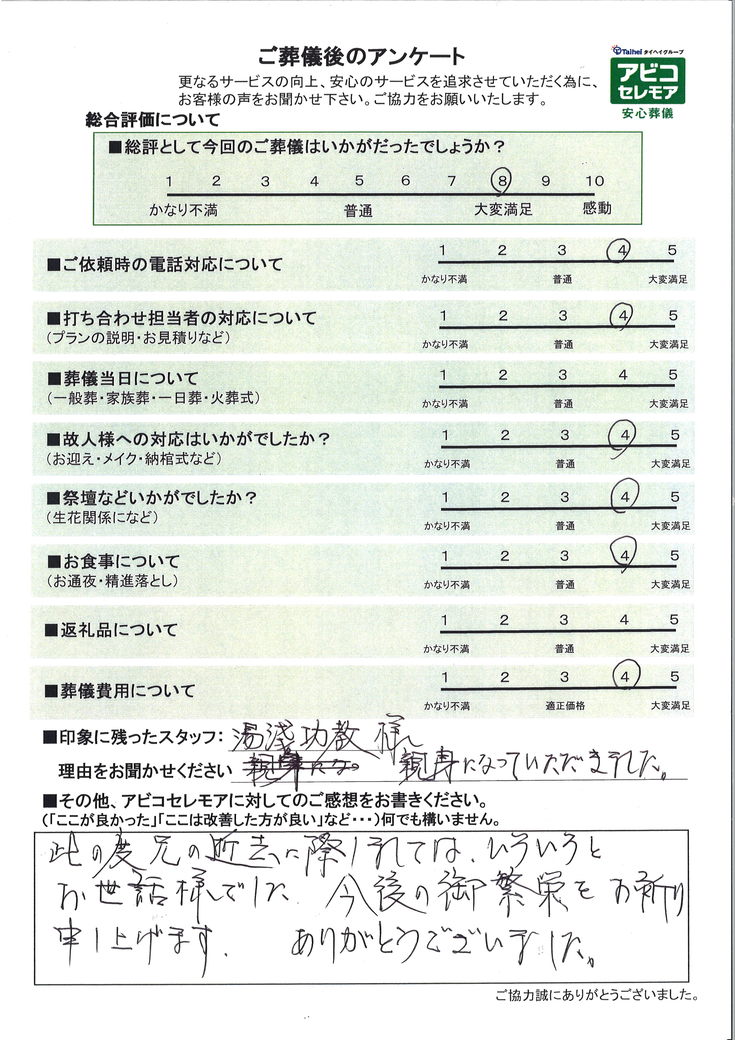 ご葬儀後のアンケート
Taihei タイヘイグループ
アビコ
セレモア
安心葬儀
更なるサービスの向上、安心のサービスを追求させていただく為に、
お客様の声をお聞かせ下さい。ご協力をお願いいたします。
総合評価について
■総評として今回のご葬儀はいかがだったでしょうか？
1 2 3 4 5 6 7 8 9 10
かなり不満 普通 大変満足 感動
■ご依頼時の電話対応について
1 2 3 4 5
かなり不満 普通 大変満足
■打ち合わせ担当者の対応について
(プランの説明・お見積りなど)
1 2 3 4 5
かなり不満 普通 大変満足
■葬儀当日について
(一般葬・家族葬・一日葬・火葬式)
1 2 3 4 5
かなり不満 普通 大変満足
■故人様への対応はいかがでしたか？
(お迎え・メイク・納棺式など)
1 2 3 4 5
かなり不満 普通 大変満足
■祭壇などいかがでしたか？
(生花関係になど)
1 2 3 4 5
かなり不満 普通 大変満足
■お食事について
(お通夜・精進落とし)
1 2 3 4 5
かなり不満 普通 大変満足
■返礼品について
1 2 3 4 5
かなり不満 普通 大変満足
■葬儀費用について
1 2 3 4 5
かなり不満 適正価格 大変満足
■印象に残ったスタッフ: 湯浅功教 様
理由をお聞かせください 親身になっていただきました。
■その他、アビコセレモアに対してのご感想をお書きください。
(「ここが良かった」「ここは改善した方が良い」など・・・)何でも構いません。
此の度兄の逝去に際しましては、いろいろと
お世話様でした 今後の御繁栄をお祈り
申し上げます. ありがとうございました。
ご協力誠にありがとうございました。